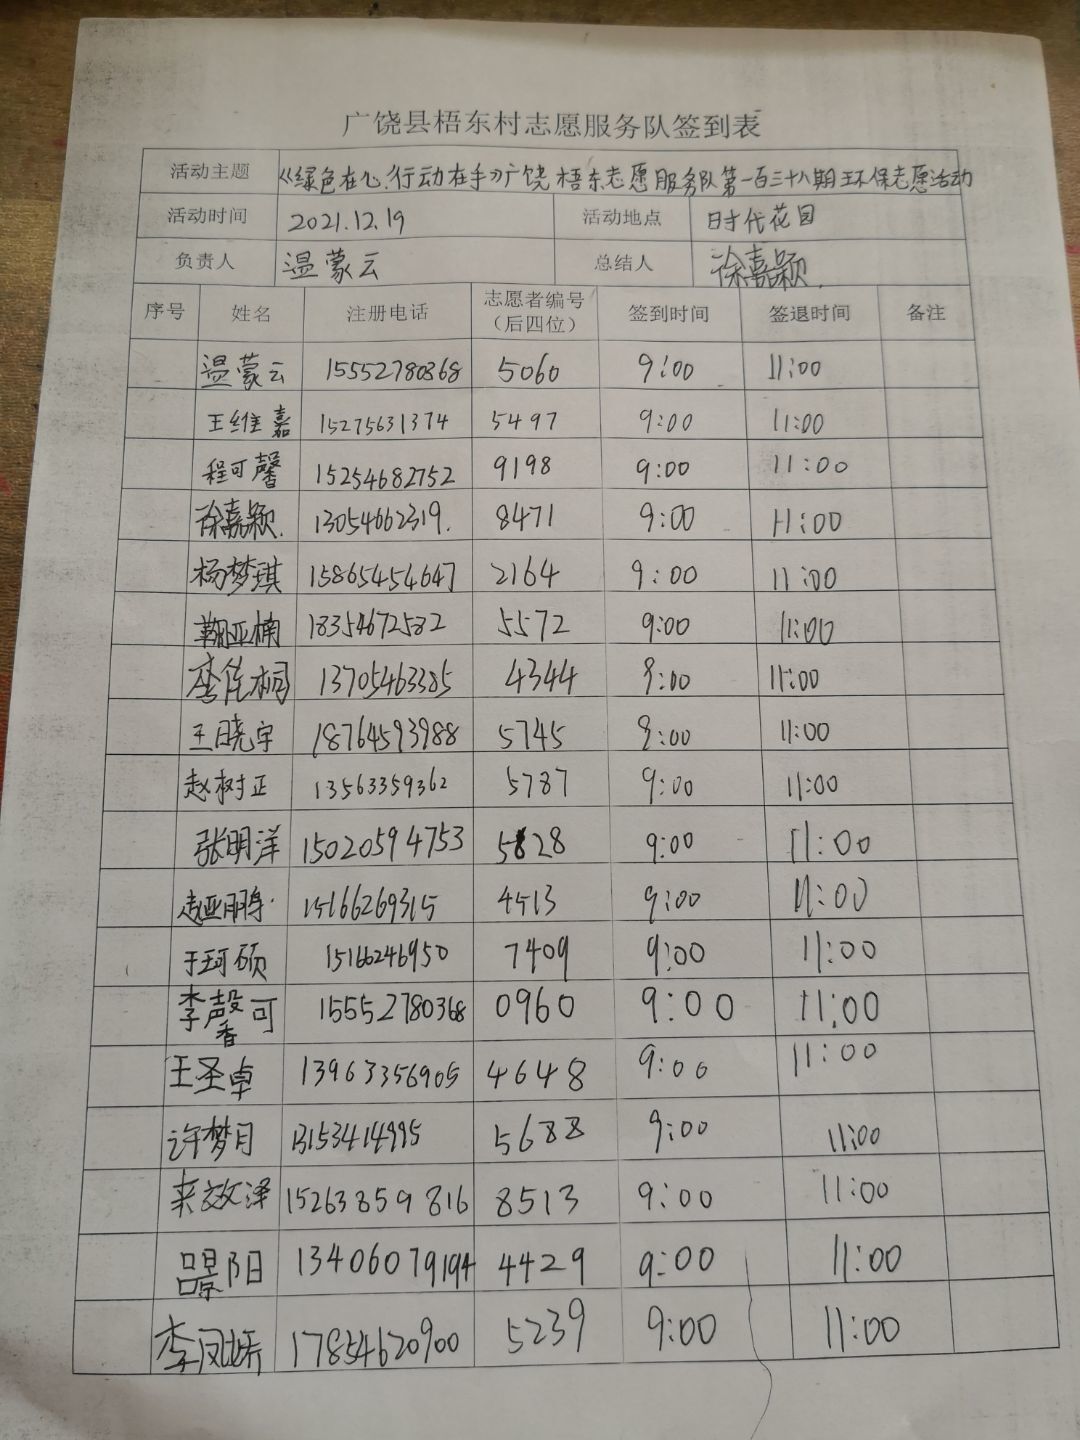 广饶县梧东村志愿服务队签到表
活动主题 《绿色在心,行动在手》广饶梧东志愿服务队第一百三十八期环保志愿活动
活动时间 2021.12.19 活动地点 时代花园
负责人 温蒙云 总结人 徐嘉颖
序号 姓名 注册电话 志愿者编号（后四位） 签到时间 签退时间 备注
温蒙云 15552780368 5060 9:00 11:00
王维嘉 15275631374 5497 9:00 11:00
程可馨 15254682752 9198 9:00 11:00
徐嘉颖. 13054662319. 8471 9:00 11:00
杨梦琪 15865454647 2164 9:00 11:00
亚楠 18354672582 5572 9:00 11:00
李佳桐 13705463385 4344 9:00 11:00
王晓宇 18764593988 5745 9:00 11:00
赵树正 13563359362 5787 9:00 11:00
张明洋 15020594753 5828 9:00 11:00
赵亚鹏 15166269315 4513 9:00 11:00
于珂硕 15166246950 7409 9:00 11:00
李馨可 15552780368 0960 9:00 11:00
王圣卓 13963356905 4648 9:00 11:00
许梦月 13153414995 5688 9:00 11:00
来效泽 15263859816 8513 9:00 11:00
吕景阳 13406079194 4429 9:00 11:00
李凤娇 17854620900 5239 9:00 11:00